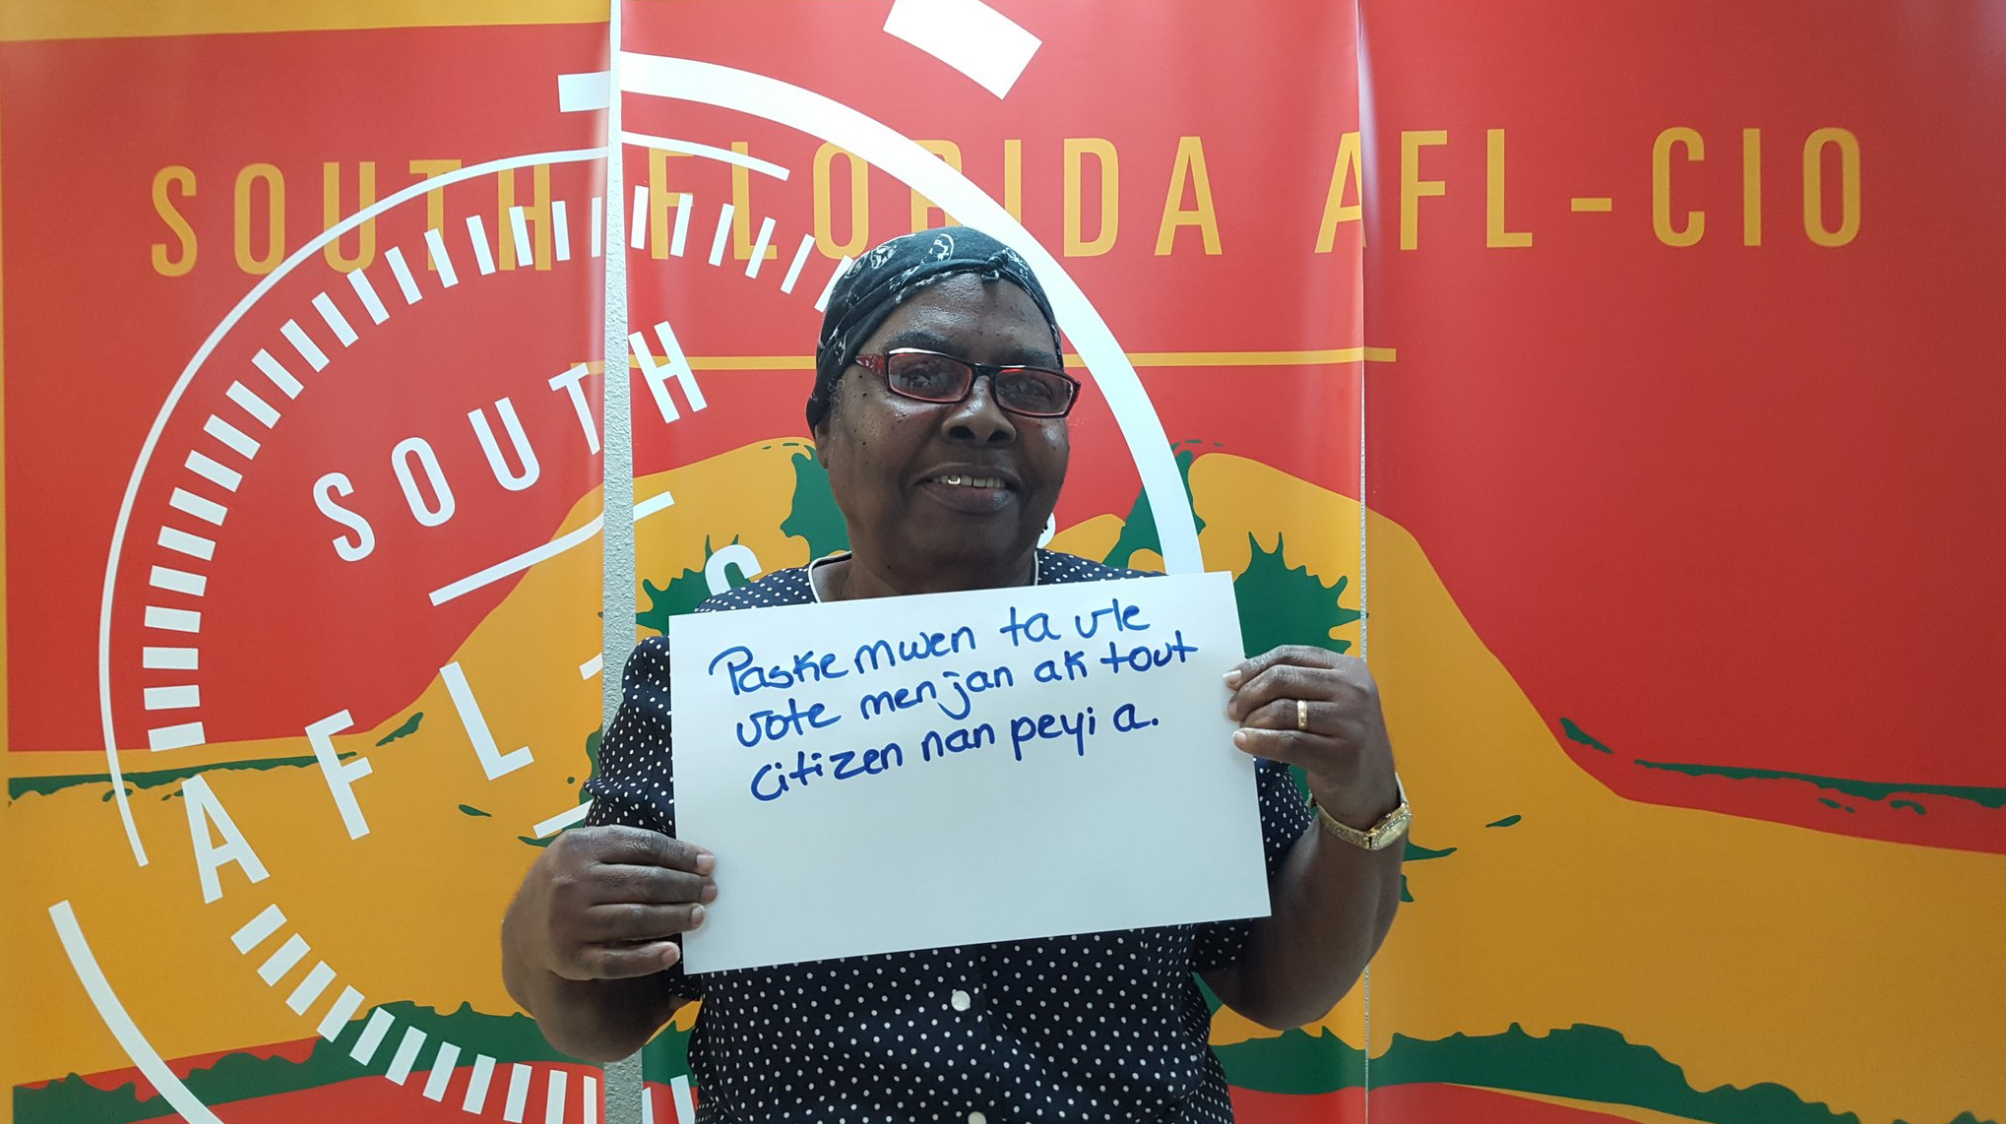 SOUTH FLORIDA AFL-CIO
SOUTH
AFL
Paske mwen ta vle
vote menjan ak tout
citizen nan peyi a.